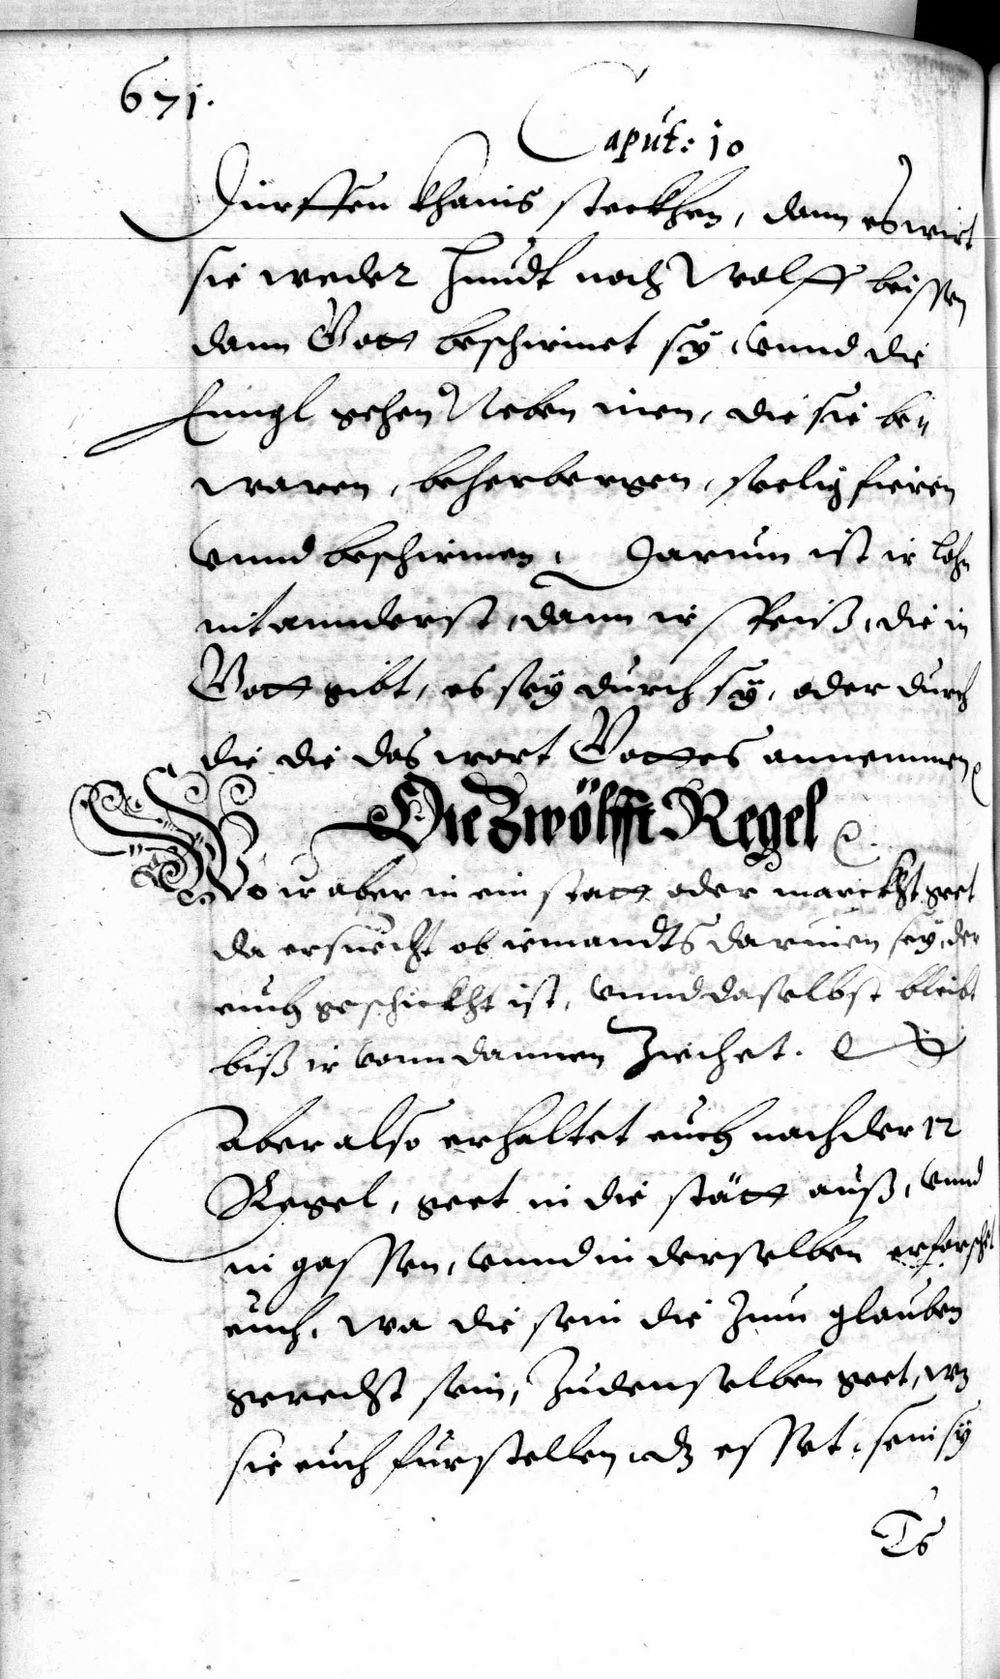 671.
Caput: 10
Dürffen khains steckhen, dann es wirt
sie weder hundt noch Wolff beissen
dann Gott beschirmet sÿ, vnnd die
Enngl gehen Neben inen, die sie be„
waren, beherbergen, seelig fieren
vnnd beschirmen. Darum ist ir lohn
nit annderst, dann ir speiß, die in
Gott gibt, es seÿ durch sÿ, oder durch
die die das wort Gottes annemmen
Die Zwölfft Regel
Wo ir aber in ein statt oder marckht geet
da ersuecht ob iemandts darinnen seÿ, der
euch geschickht ist, vnnd daselbst bleibt
biß ir vonn dannen Ziechet.
Aber also erhaltet euch nach der 12
Regel, geet in die stätt auß, vnnd
in gassen, vnnd in derselben erforscht
euch, wa die sein die Zum glauben
gerecht sein, Zu denselben geet, wz
sie euch fürstellen dz esset, sein sÿ
Ts